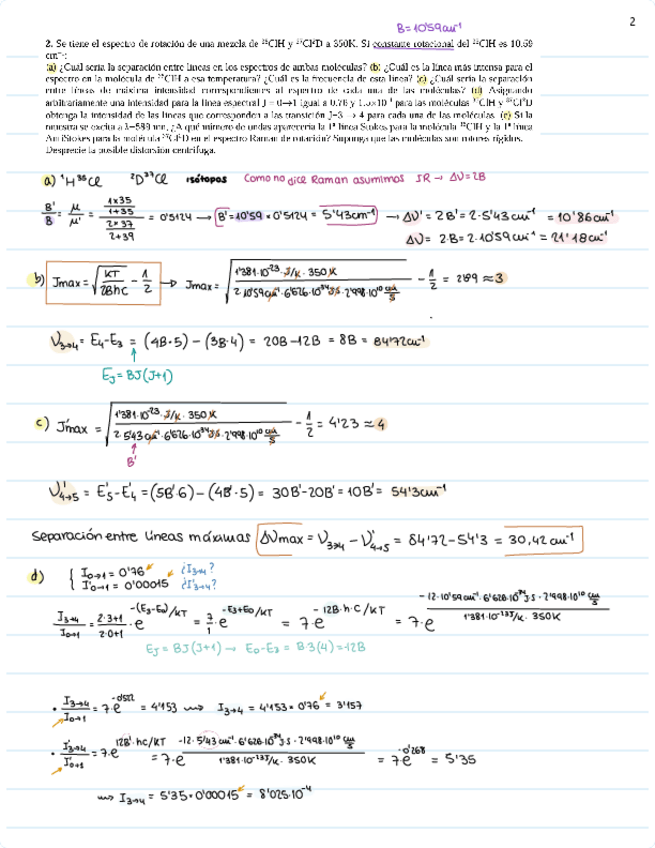 2
B=10'59cm⁻¹
2. Se tiene el espectro de rotación de una mezcla de ³⁵ClH y ³⁷ClD a 350K. Si constante rotacional del ³⁵ClH es 10.59
cm⁻¹:
(a) ¿Cual sería la separación entre lineas en los espectros de ambas moléculas? (b) ¿Cuál es la linea más intensa para el
espectro en la molécula de ³⁵ClH a esa temperatura? ¿Cuál es la frecuencia de esta linea? (c) ¿Cuál sería la separación
entre líneas de máxima intensidad correspondientes al espectro de cada una de las moléculas? (d) Asignando
arbitrariamente una intensidad para la linea espectral J = 0→1 igual a 0.76 y 1.5×10⁻⁴ para las moléculas ³⁵ClH y ³⁷ClD
obtenga la intensidad de las lineas que corresponden a las transición J=3 → 4 para cada una de las moléculas. (e) Si la
muestra se excita a λ=589 nm, ¿A qué número de ondas aparecería la 1ª linea Stokes para la molécula ³⁵ClH y la 1ª linea
AntiStokes para la molécula ³⁷ClD en el espectro Raman de rotación? Suponga que las moléculas son rotores rígidos.
Desprecie la posible distorsión centrífuga.
a) ¹H³⁵Cl ²D³⁷Cl isótopos Como no dice Raman asumimos IR → ΔU=2B
B'/B = μ/μ' = (1x35/1+35)/(2x37/2+39) = 0'5124 → B'=10'59 · 0'5124 = 5'43cm⁻¹ → ΔU' = 2B' = 2·5'43 cm⁻¹ = 10'86cm⁻¹
ΔU = 2·B = 2·10'59cm⁻¹ = 21'18cm⁻¹
b) Jmax = √(KT/2Bhc) - 1/2 → Jmax = √(1'381·10⁻²³ J/K · 350K / 2·10'59cm⁻¹·6'626·10⁻³⁴J·s·2'998·10¹⁰ cm/s) - 1/2 = 2'89 ≈ 3
U₃→₄ = E₄-E₃ = (4B·5) - (3B·4) = 20B-12B = 8B = 84'72cm⁻¹
E_J = BJ(J+1)
c) J'max = √(1'381·10⁻²³ J/K · 350K / 2·5'43cm⁻¹·6'626·10⁻³⁴J·s·2'998·10¹⁰ cm/s) - 1/2 = 4'23 ≈ 4
B'
U'₄→₅ = E'₅-E'₄ = (5B'·6) - (4B'·5) = 30B'-20B' = 10B' = 54'3cm⁻¹
Separación entre líneas máximas ΔUmax = U₃→₄ - U'₄→₅ = 84'72-54'3 = 30,42 cm⁻¹
d) { I₀→₁ = 0'76 ¿I₃→₄?
I'₀→₁ = 0'00015 ¿I'₃→₄?
I₃→₄/I₀→₁ = (2·3+1)/(2·0+1) · e^(-(E₃-E₀)/KT) = 7/1 · e^(-E₃+E₀/KT) = 7·e^(-12B·h·C/KT) = 7·e^(-12·10'59cm⁻¹·6'626·10⁻³⁴J·s·2'998·10¹⁰ cm/s / 1'381·10⁻²³J/K · 350K)
E_J = BJ(J+1) → E₀-E₃ = B·3(4) = -12B
· I₃→₄/I₀→₁ = 7·e^(-0'522) = 4'153 ⇝ I₃→₄ = 4'153·0'76 = 3'157
· I'₃→₄/I'₀→₁ = 7·e^(12B'·hc/KT) = 7·e^(-12·5'43 cm⁻¹·6'626·10⁻³⁴J·s·2'998·10¹⁰ cm/s / 1'381·10⁻²³J/K · 350K) = 7e^(-0'268) = 5'35
⇝ I₃→₄ = 5'35·0'00015 = 8'025·10⁻⁴